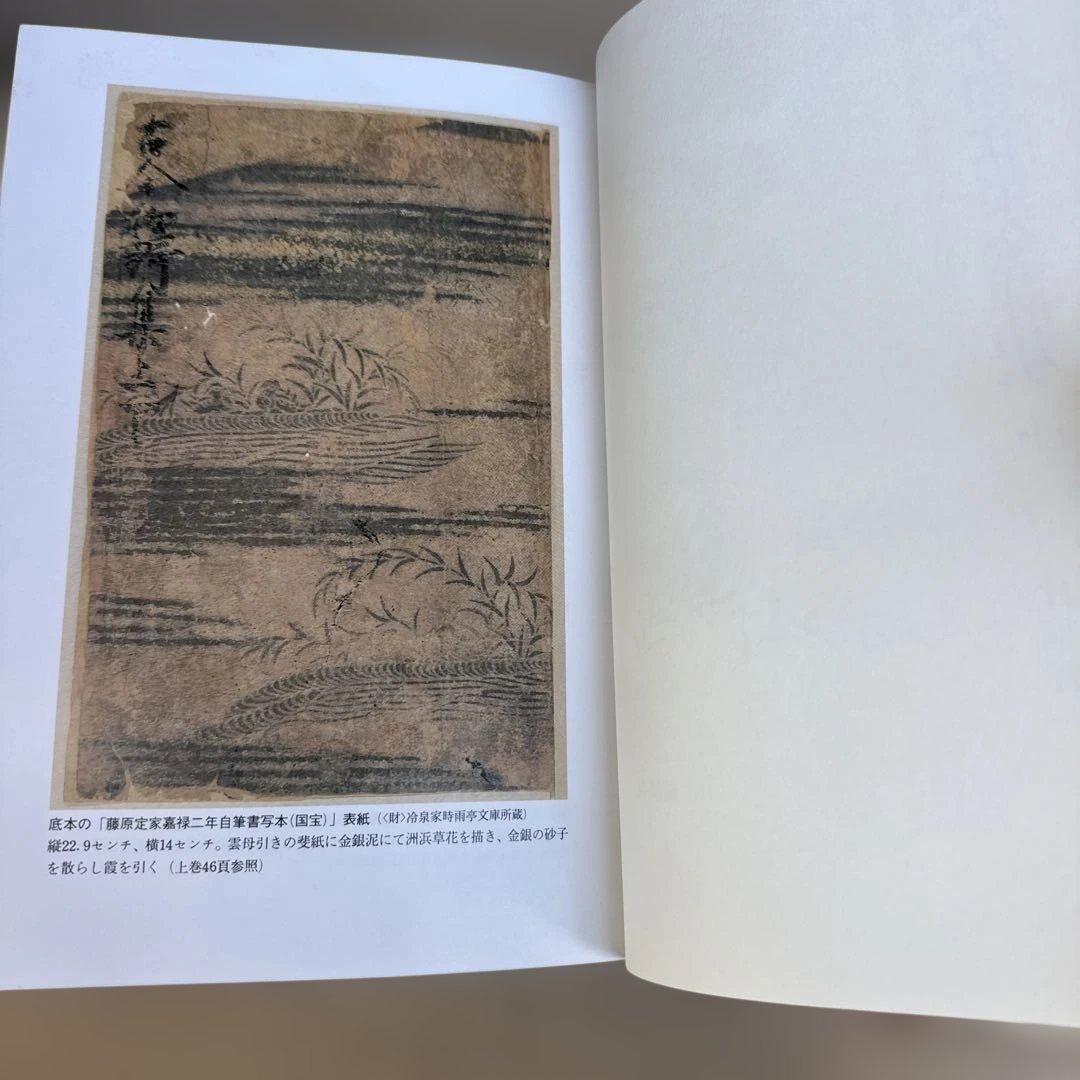 底本の「藤原定家嘉禄二年自筆書写本(国宝)」表紙(〈財〉冷泉家時雨亭文庫所蔵)
縦22.9センチ、横14センチ。雲母引きの斐紙に金銀泥にて洲浜草花を描き、金銀の砂子
を散らし霞を引く(上巻46頁参照)